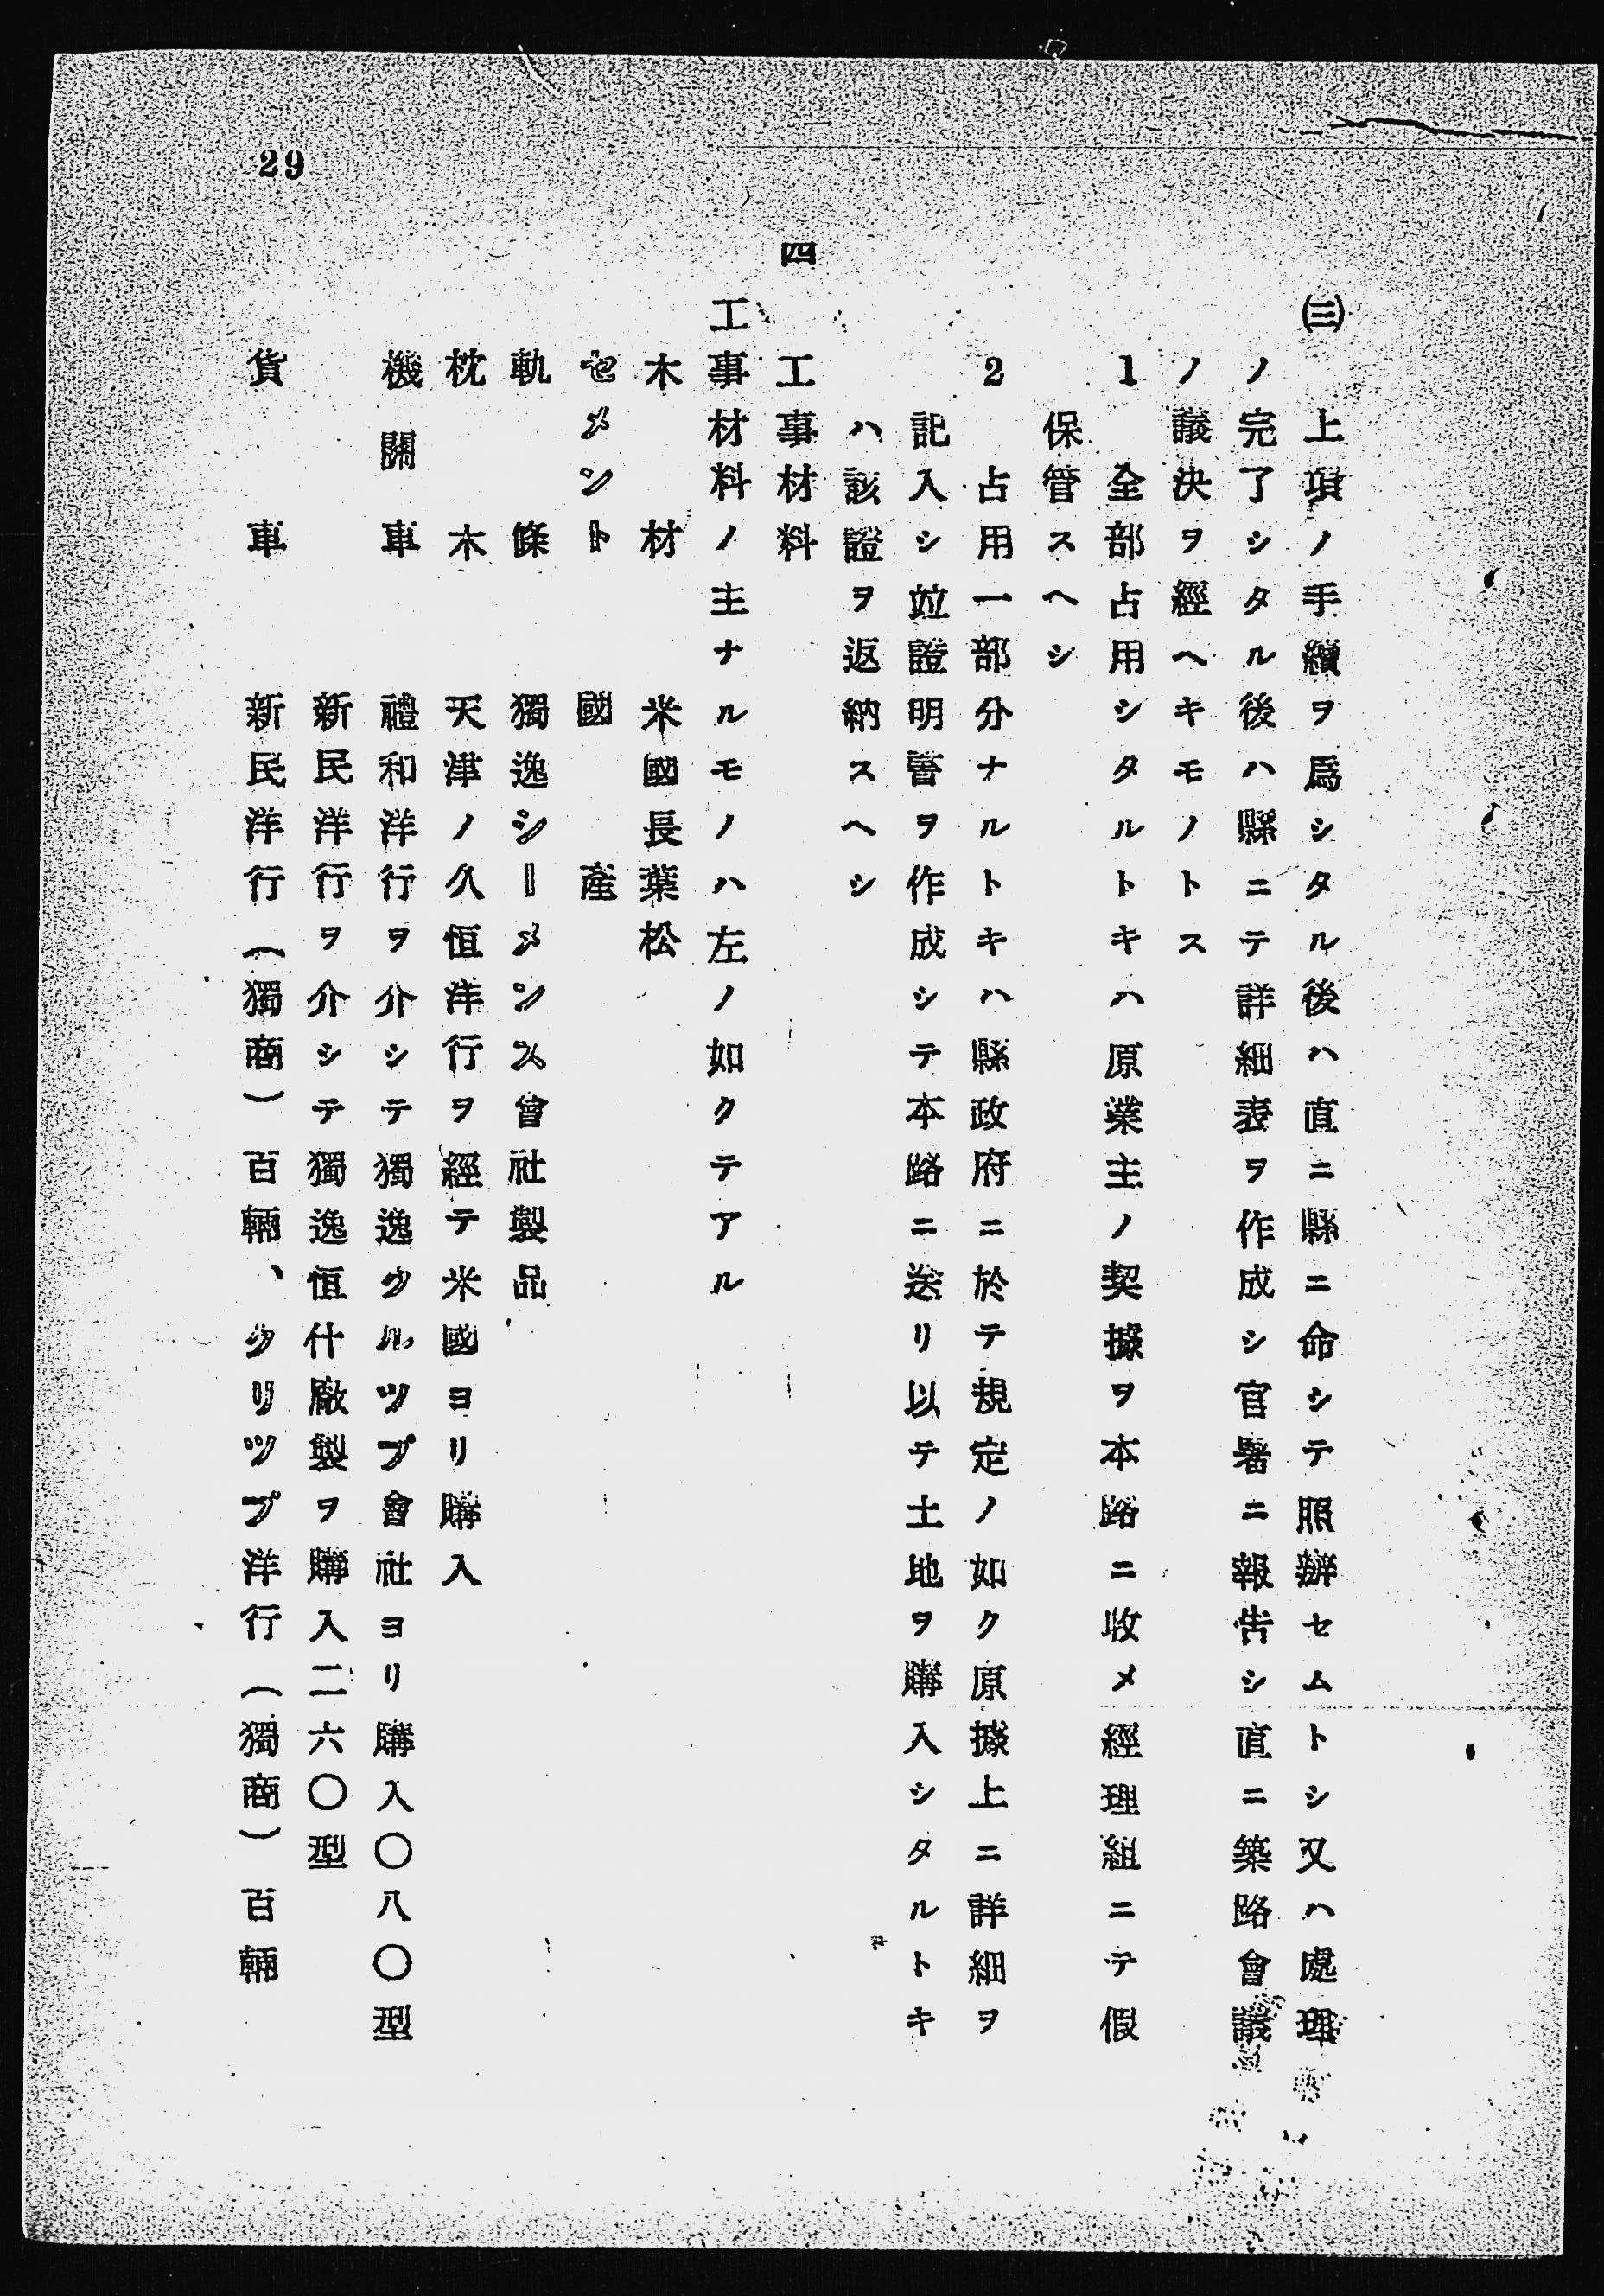 ㈢　上項ノ手續ヲ爲シタル後ハ直ニ縣ニ命シテ照辦セムトシ又ハ處理
ノ完了シタル後ハ縣ニテ詳細表ヲ作成シ官署ニ報告シ直ニ築路會議
ノ議決ヲ經ヘキモノトス
1　全部占用シタルトキハ原業主ノ契據ヲ本路ニ收メ經理組ニテ假
保管スヘシ
2　占用一部分ナルトキハ縣政府ニ於テ規定ノ如ク原據上ニ詳細ヲ
記入シ竝證明書ヲ作成シテ本路ニ送リ以テ土地ヲ購入シタルトキ
ハ該證ヲ返納スヘシ
四　工事材料
工事材料ノ主ナルモノハ左ノ如クテアル
木材　米國長葉松
セメント　國產
軌條　獨逸シーメンス會社製品
枕木　天津ノ久恒洋行ヲ經テ米國ヨリ購入
機關車　禮和洋行ヲ介シテ獨逸クルツプ會社ヨリ購入〇八〇型
新民洋行ヲ介シテ獨逸恒什廠製ヲ購入二六〇型
貨車　新民洋行（獨商）百輛、クリツプ洋行（獨商）百輛
29